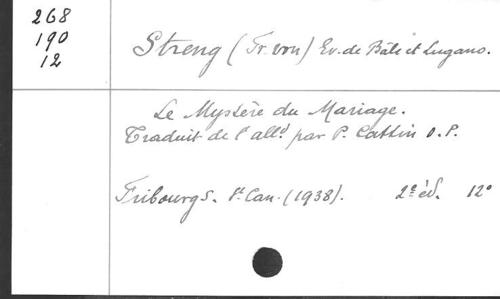 268
190
12
Streng (Fr. von) Ev. de Bâle et Lugano.
Le Mystère du Mariage.
Traduit de l'alld par P. Cattin O.P.
Fribourg S. St. Can. (1938). 2e éd. 12°